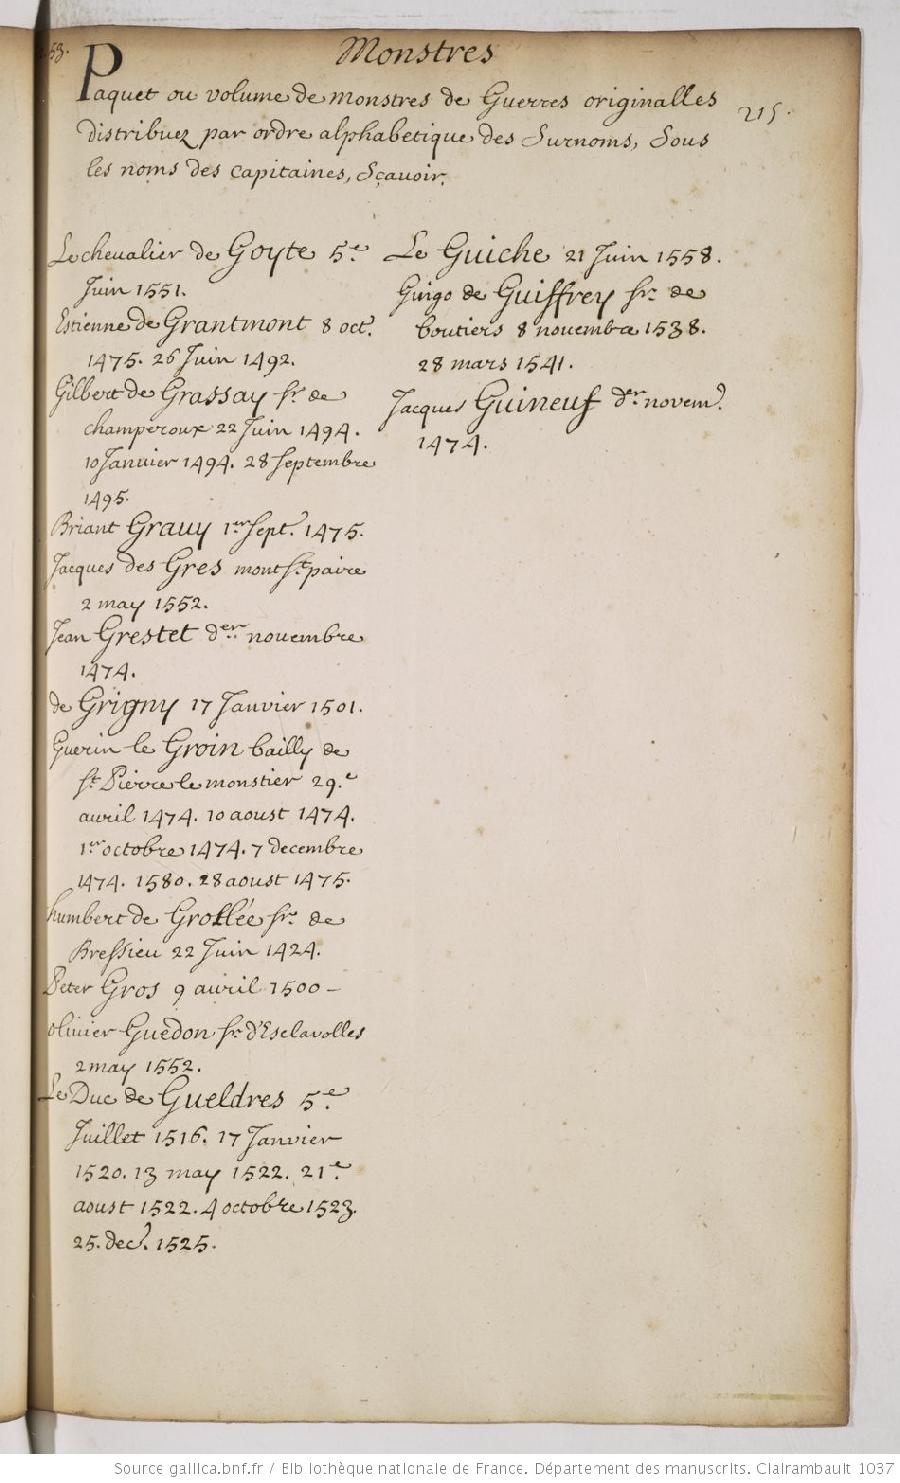 Monstres
253.
Paquet ou volume de monstres de Guerres originalles
215.
distribuez par ordre alphabetique des Surnoms, Sous
les noms des capitaines, Sçavoir.
Le chevalier de Goyte 5.e
Juin 1551.
Estienne de Grantmont 8 oct.
1475. 26 Juin 1492.
Gilbert de Grassay sr. de
champeroux 22 Juin 1494.
10 Janvier 1494. 28 septembre
1495.
Briant Grauy 1er sept. 1475.
Jacques des Gres mont St. paire
2 may 1552.
Jean Grestet der. novembre
1474.
de Grigny 17 Janvier 1501.
Guerin le Groin bailly de
St. Pierre le monstier 29.e
avril 1474. 10 aoust 1474.
1er octobre 1474. 7 decembre
1474. 1580. 28 aoust 1475.
humbert de Grollée sr. de
Bressieu 22 Juin 1424.
Peter Gros 9 avril 1500 –
olivier Guedon sr. d'Esclavolles
2 may 1552.
Le Duc de Gueldres 5.e
Juillet 1516. 17 Janvier
1520. 13 may 1522. 21.e
aoust 1522. 4 octobre 1523.
25. dec. 1525.
Le Guiche 21 Juin 1558.
Guigo de Guiffrey sr. de
boutiers 8 novembre 1538.
28 mars 1541.
Jacques Guineuf der. novem.
1474.
Source gallica.bnf.fr / Bibliothèque nationale de France. Département des manuscrits. Clairambault 1037